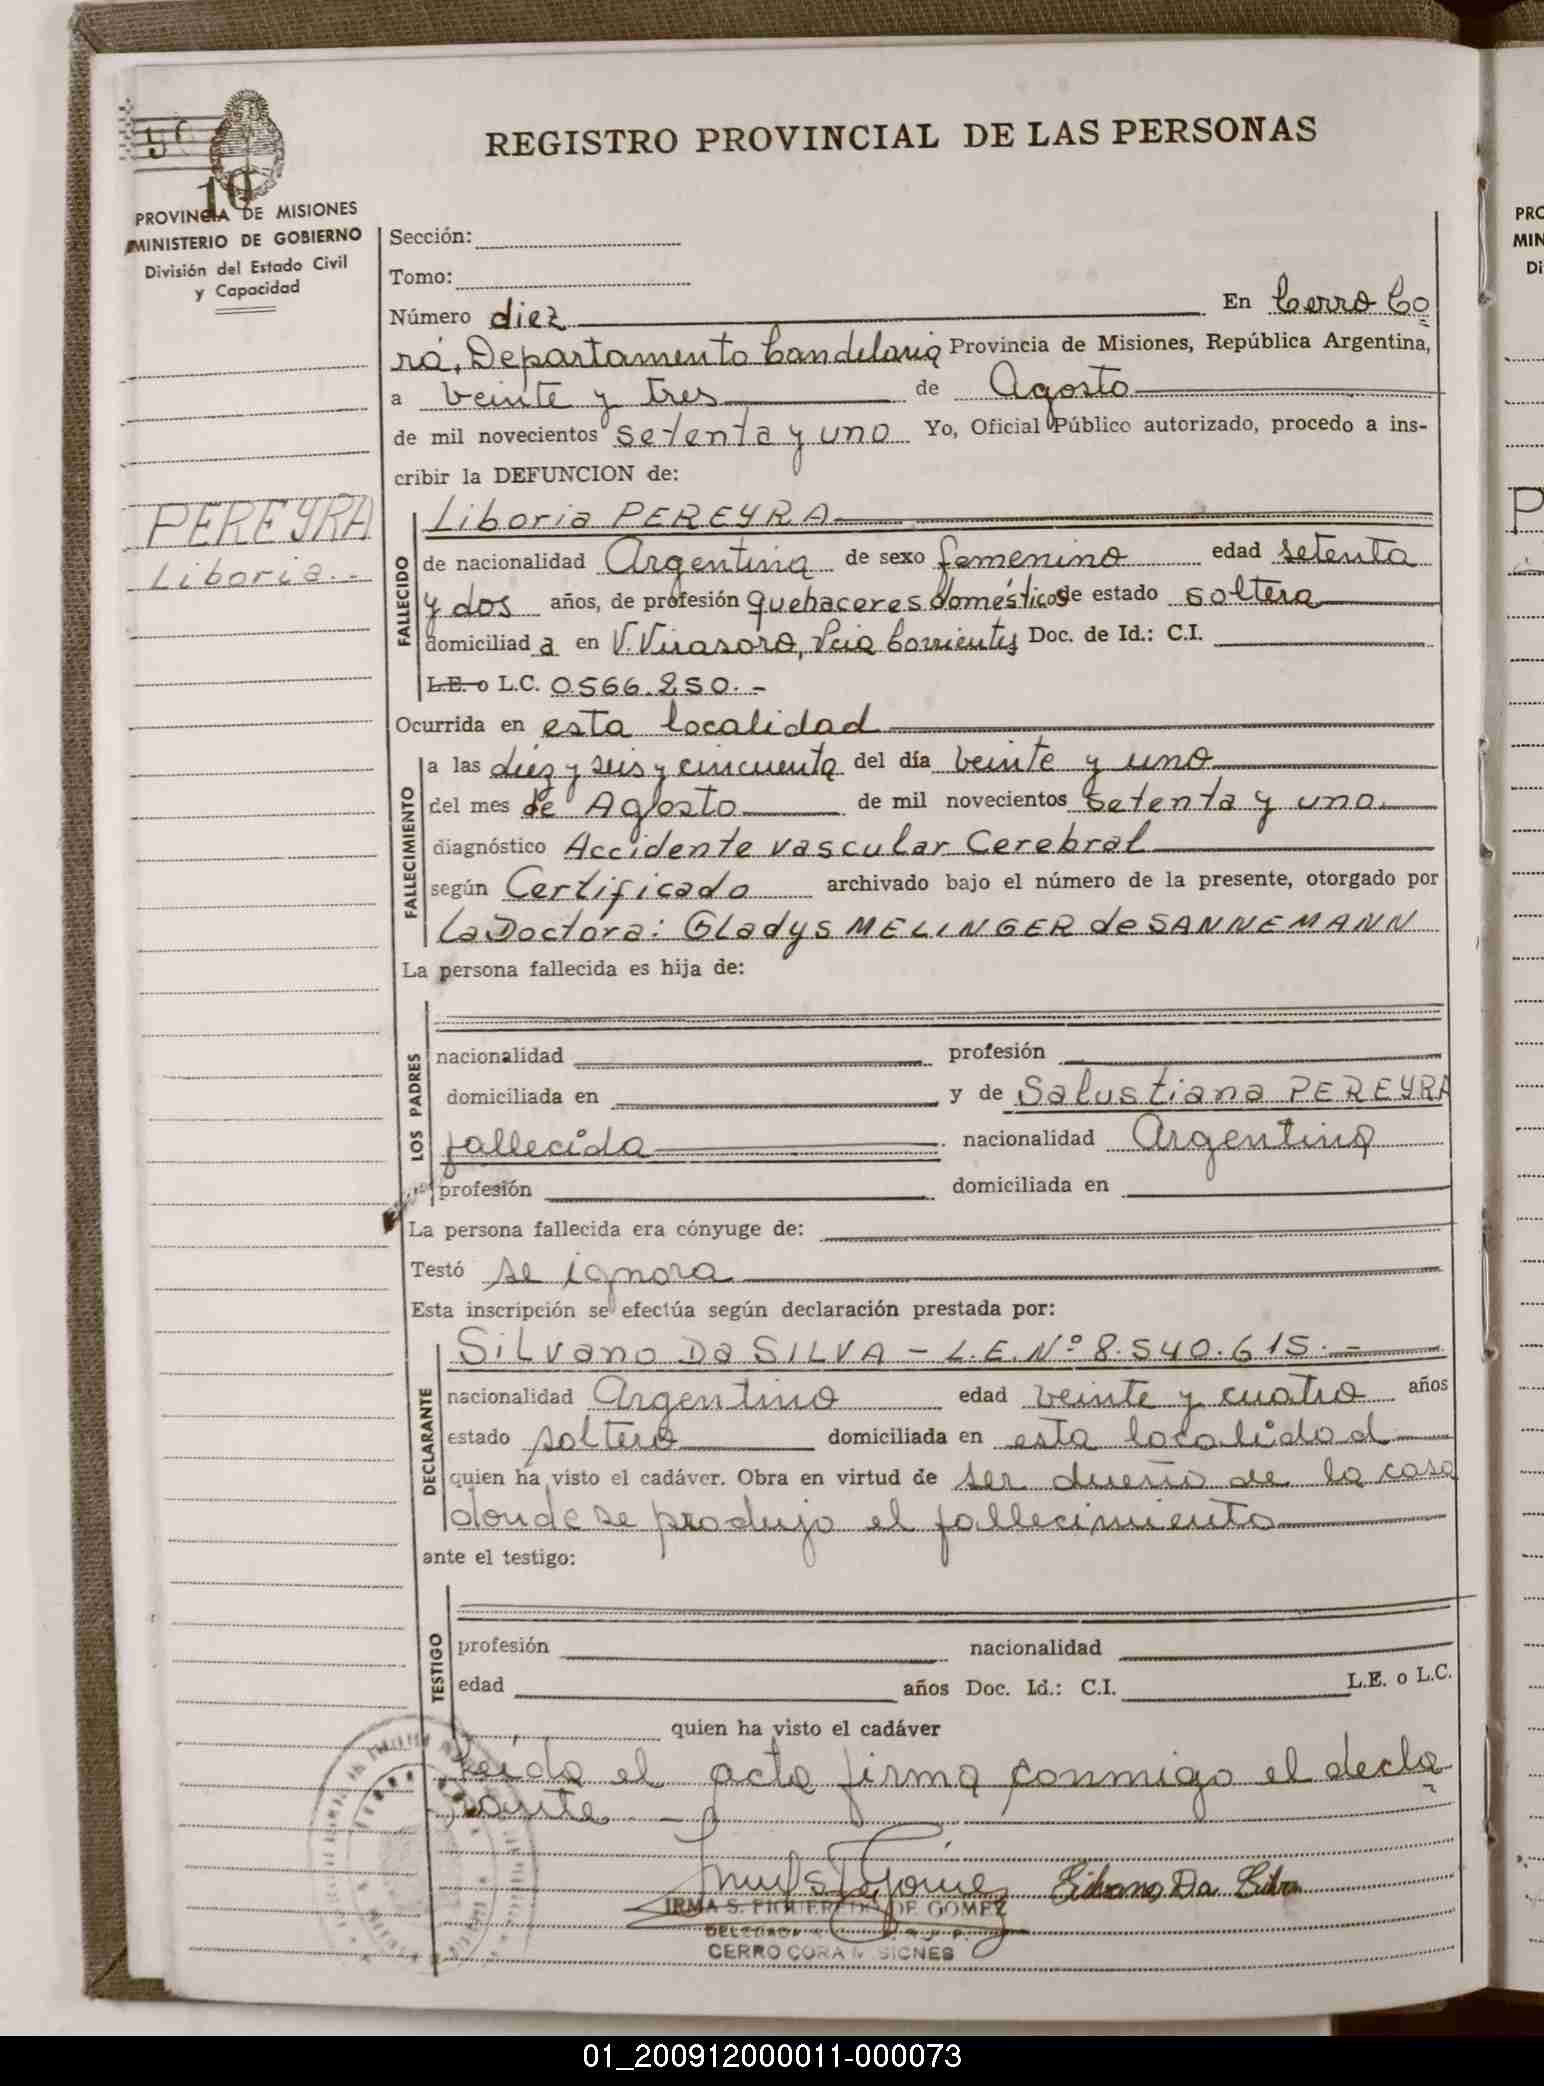 REGISTRO PROVINCIAL DE LAS PERSONAS
10
PROVINCIA DE MISIONES
MINISTERIO DE GOBIERNO
División del Estado Civil
y Capacidad
Sección:
Tomo:
Número diez En Cerro Co
rá, Departamento Candelaria Provincia de Misiones, República Argentina,
a veinte y tres de Agosto
de mil novecientos setenta y uno Yo, Oficial Público autorizado, procedo a ins-
cribir la DEFUNCION de:
PEREYRA
Liboria.-
FALLECIDO
Liboria PEREYRA
de nacionalidad Argentina de sexo femenino edad setenta
y dos años, de profesión quehaceres domésticos de estado soltera
domiciliad a en V. Virasoro, Pcia Corrientes Doc. de Id.: C.I.
L.E. o L.C. 0.566.250.-
Ocurrida en esta localidad
FALLECIMIENTO
a las diez y seis y cincuenta del día veinte y uno
del mes de Agosto de mil novecientos setenta y uno.
diagnóstico Accidente vascular Cerebral
según Certificado archivado bajo el número de la presente, otorgado por
La Doctora: GLadys MELINGER de SANNEMANN
La persona fallecida es hija de:
LOS PADRES
nacionalidad profesión
domiciliada en y de Salustiana PEREYRA
fallecida nacionalidad Argentina
profesión domiciliada en
La persona fallecida era cónyuge de:
Testó se ignora
Esta inscripción se efectúa según declaración prestada por:
DECLARANTE
SILVano Da SILVA - L.E. Nº 8.540.615.-
nacionalidad Argentino edad veinte y cuatro años
estado soltero domiciliada en esta localidad
quien ha visto el cadáver. Obra en virtud de ser dueño de la casa
donde se produjo el fallecimiento
ante el testigo:
TESTIGO
profesión nacionalidad
edad años Doc. Id.: C.I. L.E. o L.C.
quien ha visto el cadáver
Leída el acta firma conmigo el decla
rante -
Silvano Da Silva
IRMA S. FIGUEREDO DE GOMEZ
CERRO CORA MISIONES
PRO
MIN
Di
P
01_200912000011-000073